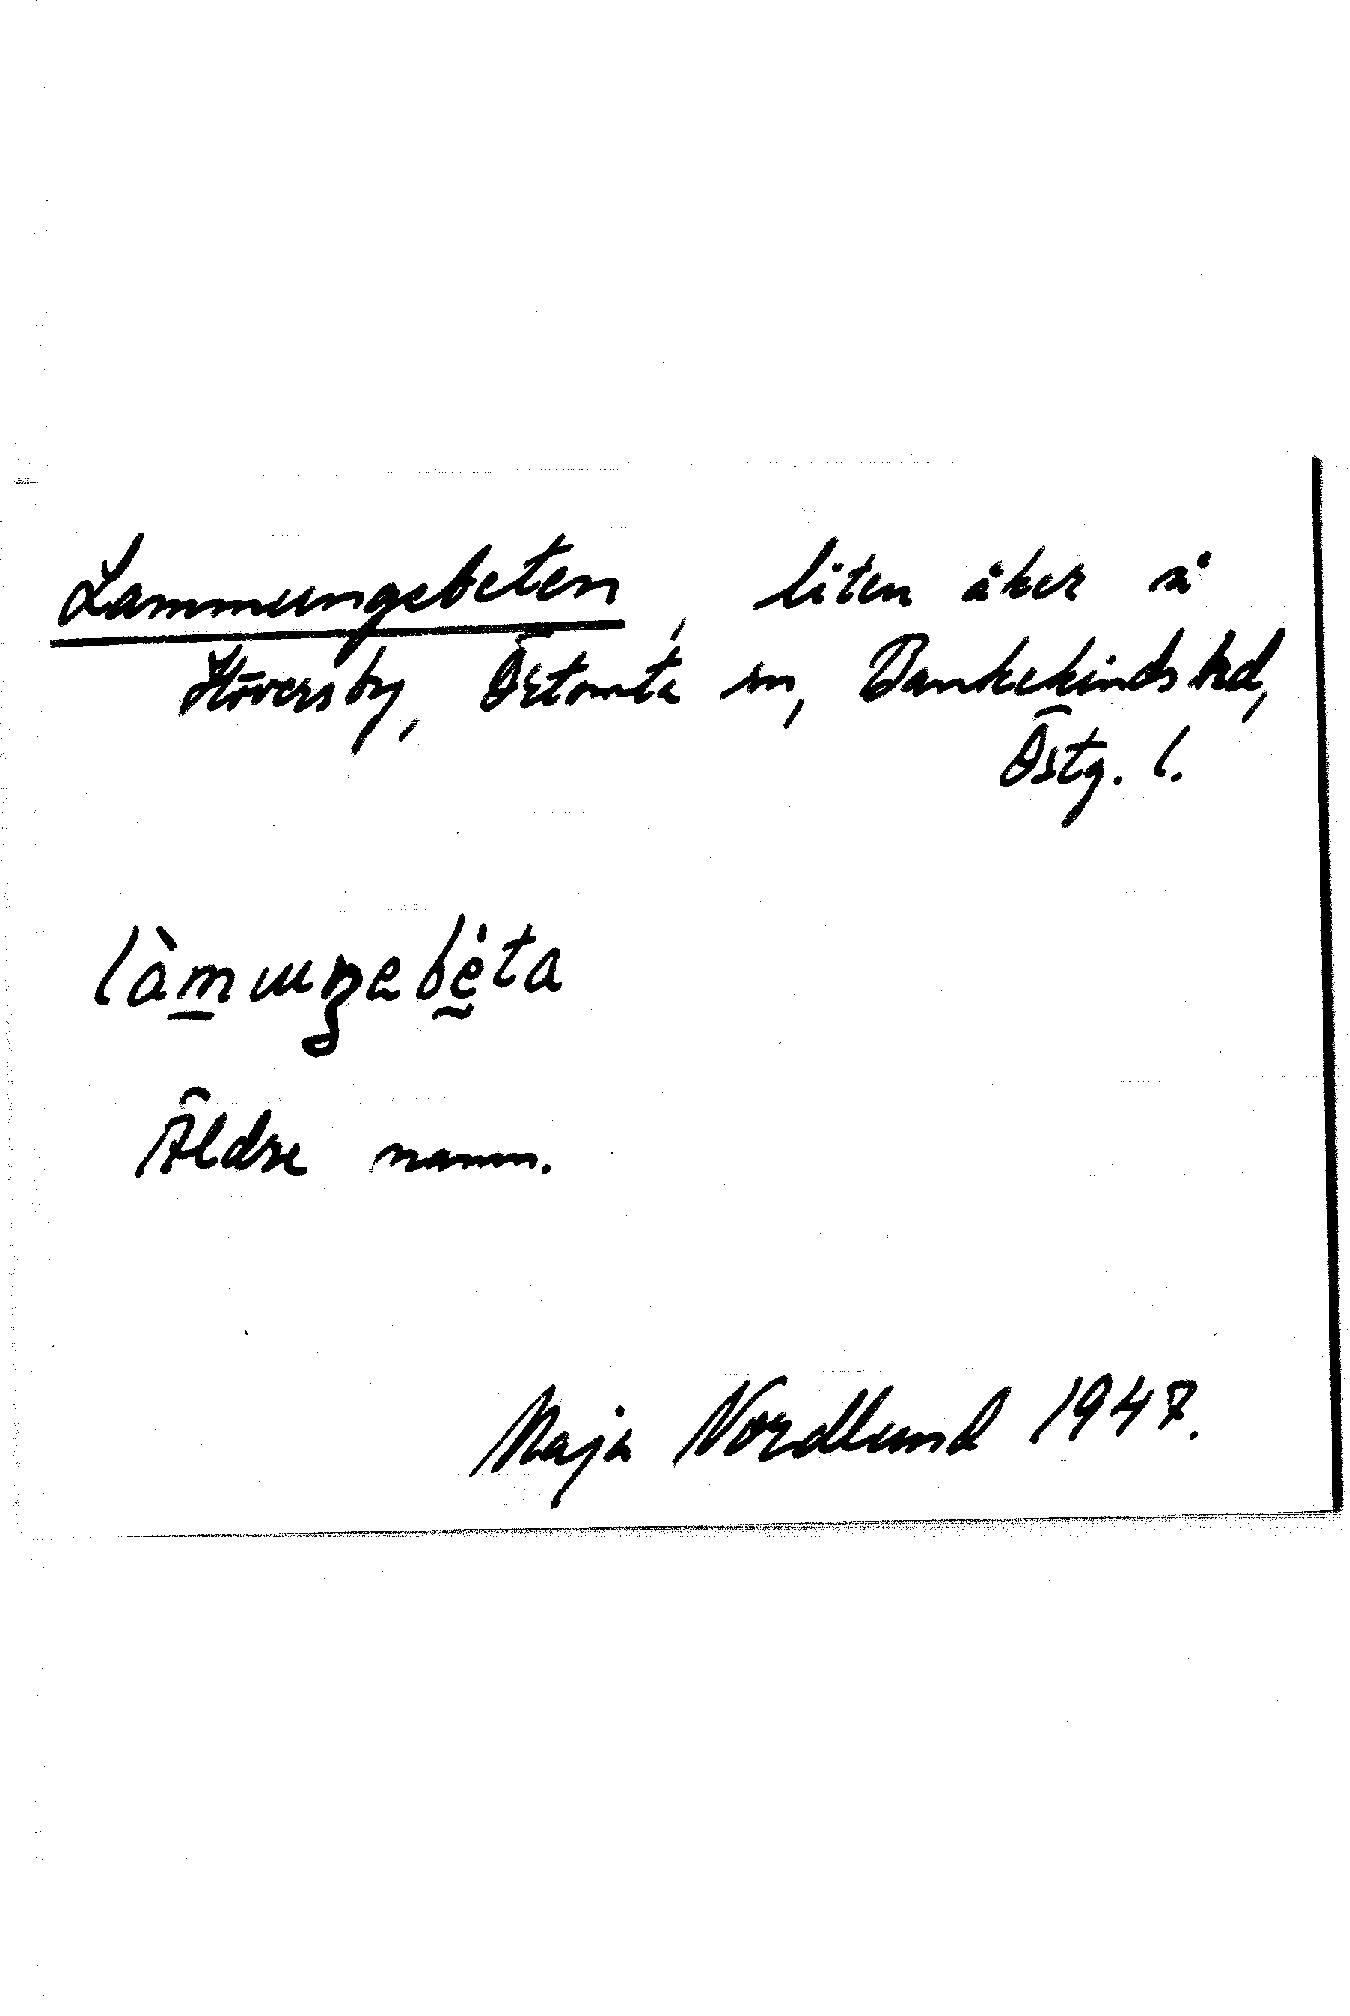 Lammungebeten, liten åker å
Höversby, Östomta sn, Bankekinds hd,
Östg. l.
làmuŋebėta
Äldre namn.
Maja Nordlund 1947.